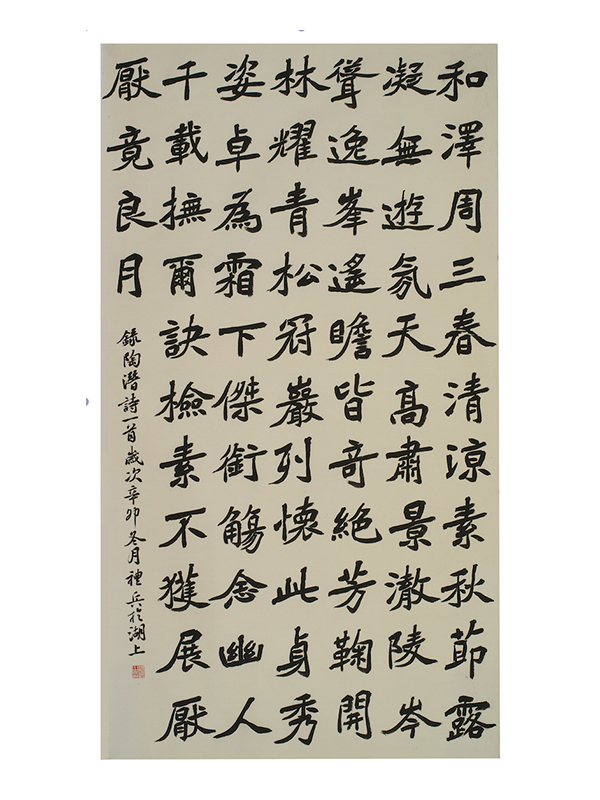 和澤周三春清涼素秋節露
凝無遊氛天高肅景澈陵岑
聳逸峯遙瞻皆奇絕芳鞠開
林耀青松冠巖列懷此貞秀
姿卓為霜下傑銜觴念幽人
千載撫爾訣檢素不獲展厭
厭竟良月
錄陶潛詩一首歲次辛卯冬月禮兵於湖上